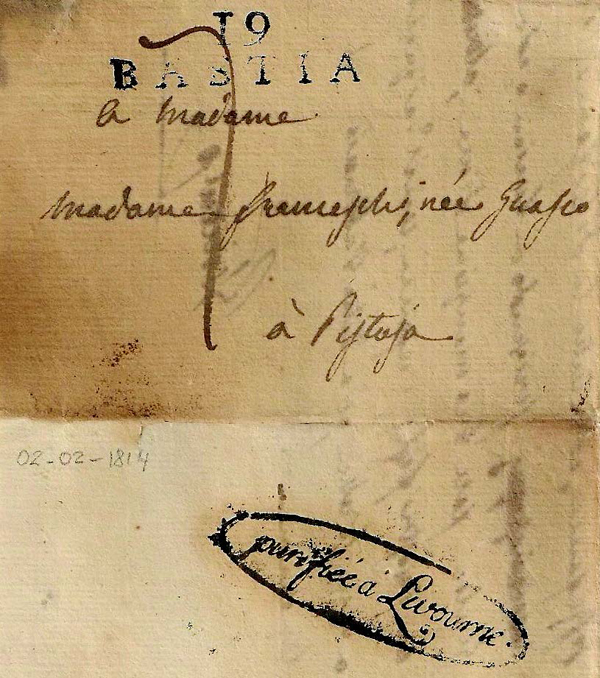 19
BASTIA
a Madame
Madame franceschi, née Guasco
à Pistoja
02-02-1814
purifiée à Livourne.